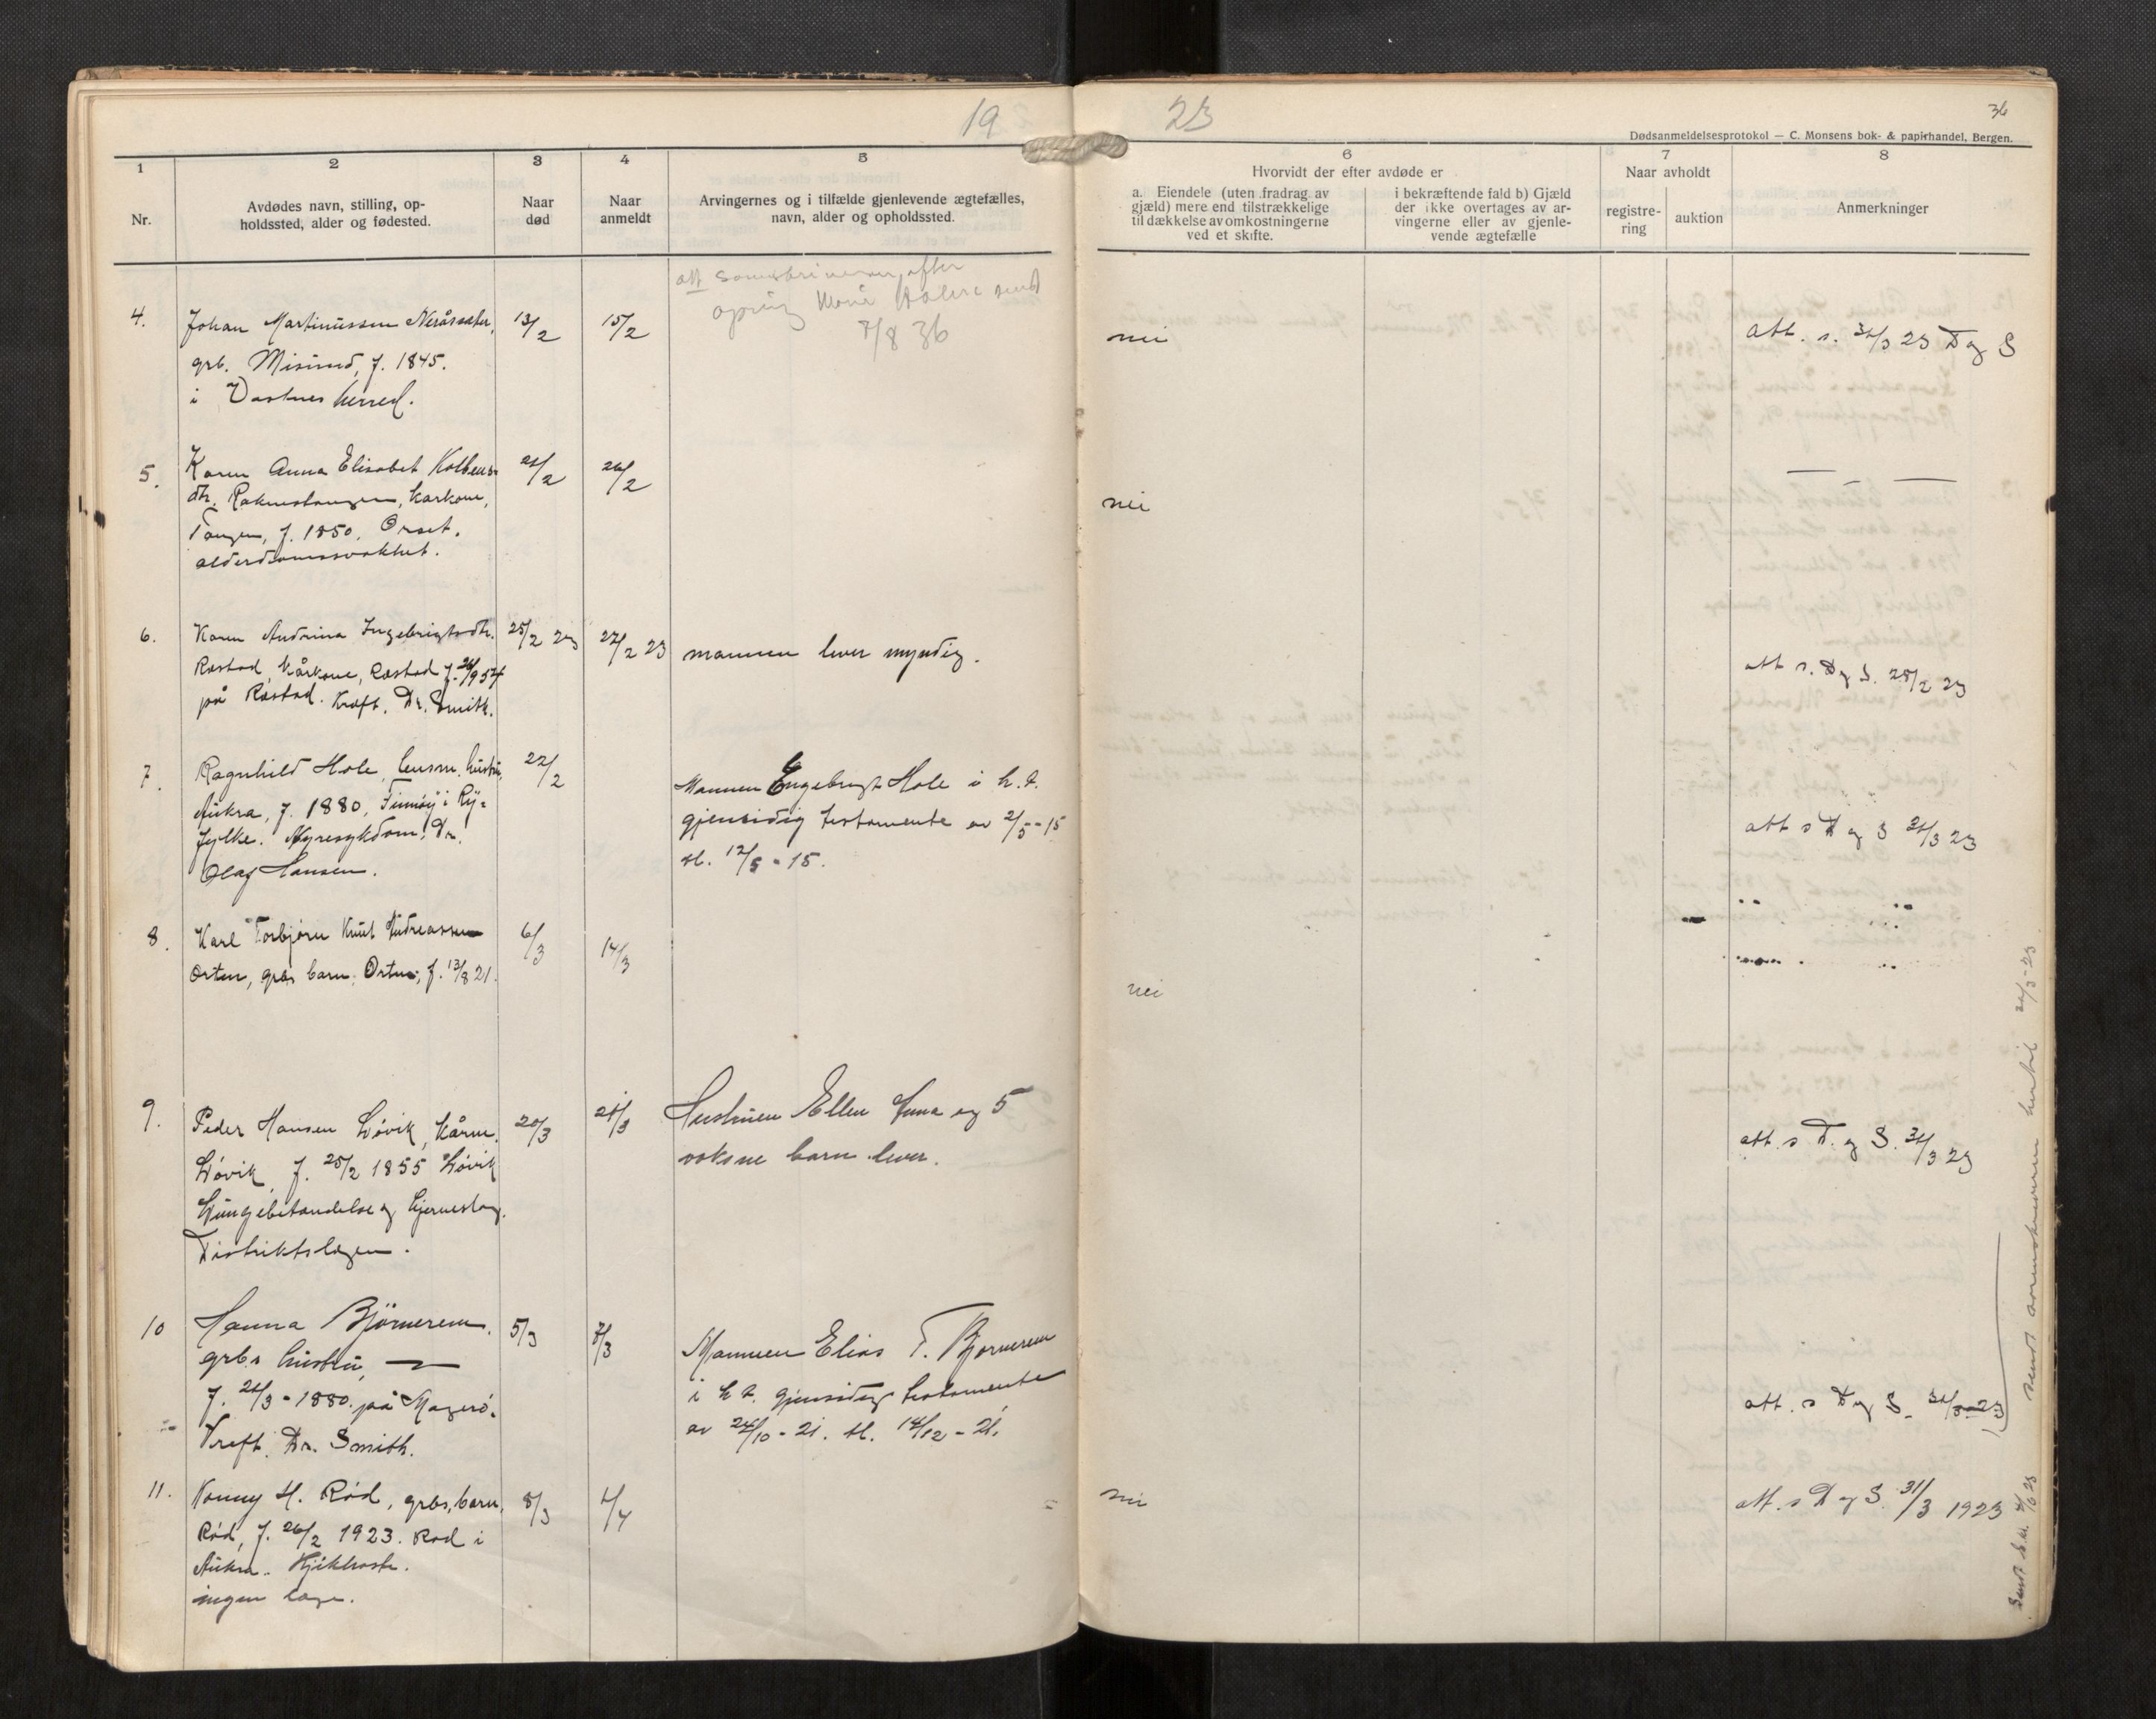 19
23
36
Dødsanmeldelsesprotokol — C. Monsens bok- & papirhandel, Bergen.
1
2
3
4
5
6
7
8
Nr.
Avdødes navn, stilling, op-
holdssted, alder og fødested.
Naar
død
Naar
anmeldt
Arvingernes og i tilfælde gjenlevende ægtefælles,
navn, alder og opholdssted.
Hvorvidt der efter avdøde er
a. Eiendele (uten fradrag av
gjæld) mere end tilstrækkelige
til dækkelse av omkostningerne
ved et skifte.
i bekræftende fald b) Gjæld
der ikke overtages av ar-
vingerne eller av gjenle-
vende ægtefælle
Naar avholdt
registre-
ring
auktion
Anmerkninger
att
efter
7/8 36
4.
Johan Martinussen Neråssæter,
grb. Misund, f. 1845.
i Vestnes herred.
13/2
15/2
nei
att. s. 31/3 23 D og S
5.
Karen Anna Elisabet Kolbens-
dtr. Rakneshaugen, kårkone,
Tangen, f. 1850. Orset.
alderdomssvakhet.
26/2
nei
6.
Karen Andrina Ingebrigtsdtr.
Røstad, kårkone, Røstad f. 26/9 54
på Røstad. Kræft. Dr. Smith.
25/2 23
27/2 23
mannen lever myndig.
att s. D og S. 28/2 23
7.
Ragnhild Hole, lensm. hustru,
Aukra, f. 1880, Finnøy i Ry-
fylke. Nyresykdom, Dr.
Olaf Hansen.
22/2
Mannen Engebrigt Hole i h.t.
gjensidig testamente av 2/5-15
tl. 12/5-15.
att s D og S 31/3 23
8.
Karl Torbjørn Knut Andreassen
Orten, grbs barn, Orten, f. 13/8 21.
6/3
14/3
nei
9.
Peder Hansen Løvik, kårm.
Løvik, f. 25/2 1855 Løvik
Lungebetændelse og hjerneslag.
Distriktslægen.
20/3
21/3
Hustruen Ellen Anna og 5
voksne barn lever.
att. s D. og S. 31/3 23
10
Hanna Bjørnerem.
grbs hustru,
f. 21/3-1880 på Magerø.
Kreft. Dr. Smith.
5/3
7/3
Mannen Elias T. Bjørnerem
i h t. gjensidig testamente
av 24/10-21. tl. 14/12-21.
att. s D og S. 31/3-23
11.
Konny H. Rød, grbs, barn,
Rød, f. 26/2 1923. Rød i
Aukra. Kjikhoste.
ingen læge.
8/3
4/4
nei
att. s D og S. 31/3 1923
sendt sorenskriveren